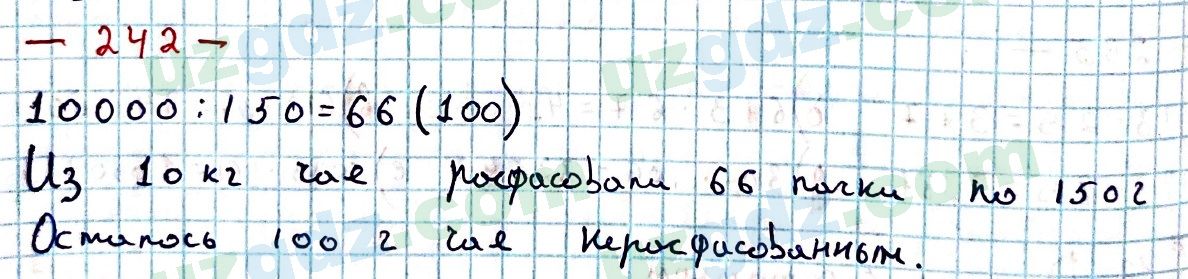 — 242 —
10000 : 150 = 66 (100)
Из 10 кг чая расфасовали 66 пачки по 150 г
Осталось 100 г чая нерасфасованным.
uzgdz.com
uzgdz.com